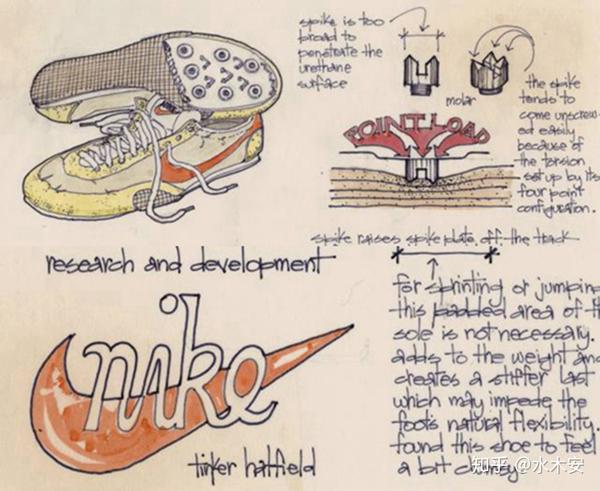 spike is too
broad to
penetrate the
urethane
surface
molar
the spike
tends to
come unscrew-
ed easily
because of
the torsion
set up by its
four point
configuration.
POINT LOAD
spike raises spike plate off the track
research and development
nike
tinker hatfield
for sprinting or jumping
this padded area of th
sole is not necessary.
adds to the weight and
creates a stiffer last
which may impede the
foot's natural flexibility.
found this shoe to feel
a bit clumsy
知乎 @水木安